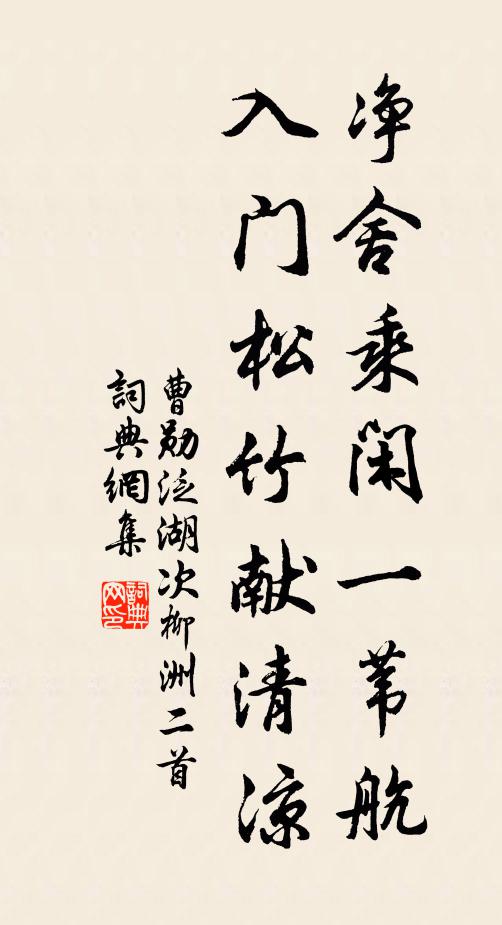 净舍乘闲一苇航
入门松竹献清凉
曹勋泛湖次柳洲二首
詞典網集
詞典网印